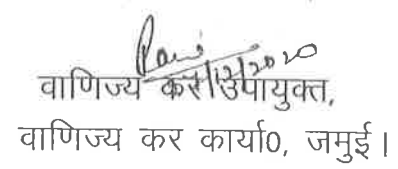 वाणिज्य कर उपायुक्त,
वाणिज्य कर कार्या0, जमुई।